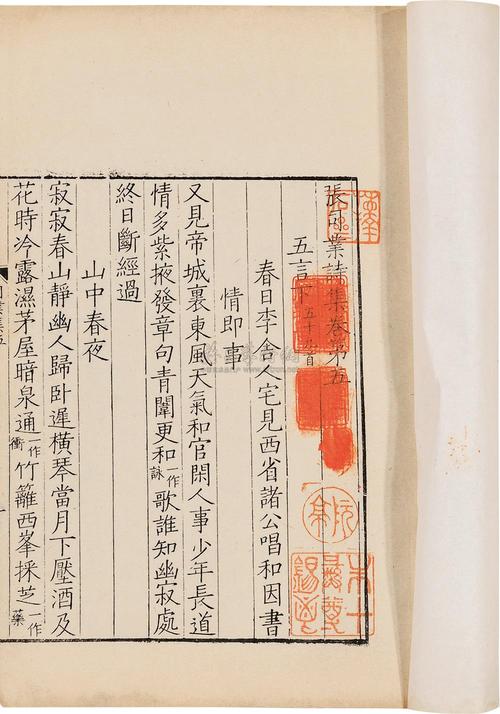 張司業詩集卷第五
五言下五十九首
春日李舍人宅見西省諸公唱和因書
情即事
又見帝城裏東風天氣和官閑人事少年長道
情多紫掖發章句青闈更和一作詠歌誰知幽寂處
終日斷經過
山中春夜
寂寂春山靜幽人歸卧遲橫琴當月下壓酒及
花時冷露濕茅屋暗泉通一作衝竹籬西峯採芝一作藥